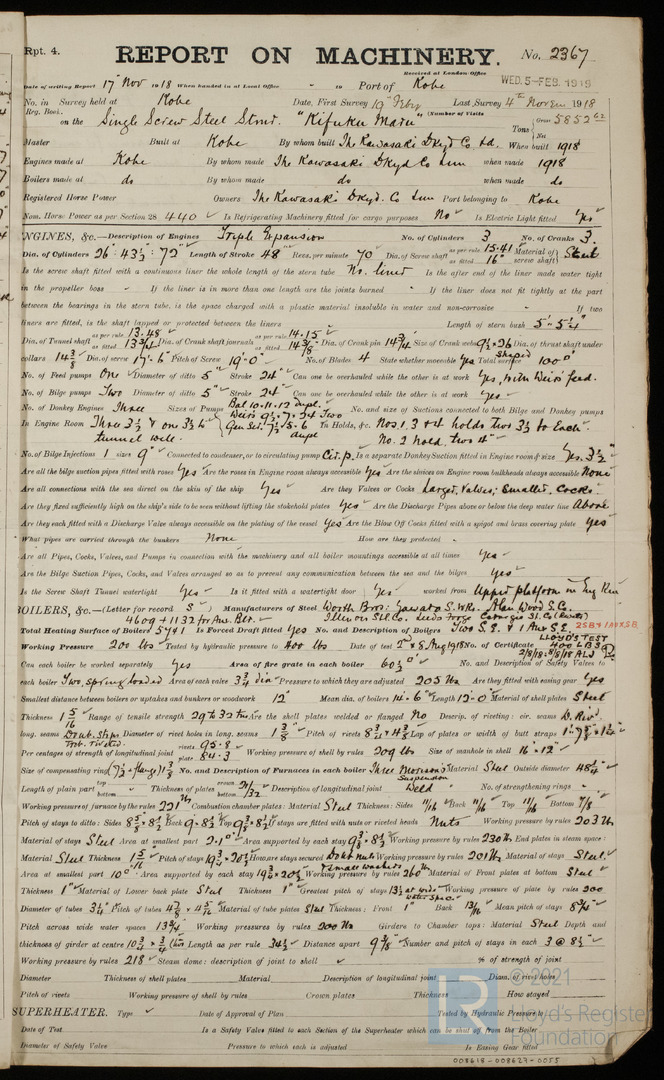 Rpt. 4.
REPORT ON MACHINERY.
No. 2367
Received at London Office
WED. 5-FEB. 1919
Date of writing Report 17th Nov 1918 When handed in at Local Office 19 Port of Kobe
No. in Survey held at Kobe Date, First Survey 19th Feby Last Survey 4th Novem 1918
Reg. Book. (Number of Visits
on the Single Screw Steel Strmr. "Kifuku Maru" Tons Gross 5852.62 Net
Master Built at Kobe By whom built The Kawasaki Dkyd Co Ld. When built 1918
Engines made at Kobe By whom made The Kawasaki Dkyd Co when made 1918
Boilers made at do By whom made do when made do
Registered Horse Power Owners The Kawasaki Dkyd. Co Port belonging to Kobe
Nom. Horse Power as per Section 28 440 Is Refrigerating Machinery fitted for cargo purposes No Is Electric Light fitted Yes
ENGINES, &c.—Description of Engines Triple Expansion No. of Cylinders 3 No. of Cranks 3
Dia. of Cylinders 26" : 43½" : 72" Length of Stroke 48" Revs. per minute 70 Dia. of Screw shaft as per rule 15.41 as fitted 16" Material of screw shaft Steel
Is the screw shaft fitted with a continuous liner the whole length of the stern tube No. liner Is the after end of the liner made water tight
in the propeller boss If the liner is in more than one length are the joints burned If the liner does not fit tightly at the part
between the bearings in the stern tube, is the space charged with a plastic material insoluble in water and non-corrosive If two
liners are fitted, is the shaft lapped or protected between the liners Length of stern bush 5'-5¼"
Dia. of Tunnel shaft as per rule 13.48 as fitted 13¾ Dia. of Crank shaft journals as per rule 14.15 as fitted 14⅜ Dia. of Crank pin 14¾ Size of Crank webs 9½ × 26 Dia. of thrust shaft under
collars 14⅜ Dia. of screw 17'-6" Pitch of Screw 19'-0" No. of Blades 4 State whether moveable Yes Total surface 100
No. of Feed pumps One Diameter of ditto 5" Stroke 24" Can one be overhauled while the other is at work Yes, with Weir's feed.
No. of Bilge pumps Two Diameter of ditto 5" Stroke 24" Can one be overhauled while the other is at work Yes
No. of Donkey Engines Three Sizes of Pumps Bal 10.11.12 duplx Weirs 9½.7.24 Two Gen Ser. 7½.5.6 duplx No. and size of Suctions connected to both Bilge and Donkey pumps
In Engine Room Three 3½ & one 3½ tunnel well. In Holds, &c. Nos 1.3 & 4 holds two 3½ to Each.
No. 2 hold two 4"
No. of Bilge Injections 1 sizes 9" Connected to condenser, or to circulating pump Cir. p. Is a separate Donkey Suction fitted in Engine room & size Yes. 3½"
Are all the bilge suction pipes fitted with roses Yes Are the roses in Engine room always accessible Yes Are the sluices on Engine room bulkheads always accessible None
Are all connections with the sea direct on the skin of the ship Yes Are they Valves or Cocks Larger, Valves; Smaller, Cocks
Are they fixed sufficiently high on the ship's side to be seen without lifting the stokehold plates Yes Are the Discharge Pipes above or below the deep water line Above
Are they each fitted with a Discharge Valve always accessible on the plating of the vessel Yes Are the Blow Off Cocks fitted with a spigot and brass covering plate Yes
What pipes are carried through the bunkers None How are they protected
Are all Pipes, Cocks, Valves, and Pumps in connection with the machinery and all boiler mountings accessible at all times Yes
Are the Bilge Suction Pipes, Cocks, and Valves arranged so as to prevent any communication between the sea and the bilges Yes
Is the Screw Shaft Tunnel watertight Yes Is it fitted with a watertight door Yes worked from Upper platform in Eng Rm
BOILERS, &c.—(Letter for record S) Manufacturers of Steel Worth Bros: Yawata S. Wks. Alan Wood S. Co.
4609 + 1132 for Aux. Blr. Illinois Stl. Co. Leeds Forge Carnegie St. Co (Rivets)
2SB & 1AUXSB.
Total Heating Surface of Boilers 5741 Is Forced Draft fitted Yes No. and Description of Boilers Two S.E. & 1 Aux S.E.
LLOYD'S TEST
Working Pressure 200 lbs Tested by hydraulic pressure to 400 lbs Date of test 2nd & 8 Aug 1918 No. of Certificate 400 LBS
2/8/18 : 8/8/18 ALJ
Can each boiler be worked separately Yes Area of fire grate in each boiler 60½ No. and Description of Safety Valves to
each boiler Two, Spring loaded Area of each valve 3¾ dia Pressure to which they are adjusted 205 lbs Are they fitted with easing gear Yes
Smallest distance between boilers or uptakes and bunkers or woodwork 12" Mean dia. of boilers 14'-6" Length 12'-0" Material of shell plates Steel
Thickness 1 5/16 Range of tensile strength 29 to 32 tons Are the shell plates welded or flanged No Descrip. of riveting : cir. seams D. Riv.
long. seams Doub. Straps Treb. riveted Diameter of rivet holes in long. seams 1⅜ Pitch of rivets 8¾ & 4⅜ Lap of plates or width of butt straps
Per centages of strength of longitudinal joint rivets 95.8 plate 84.3 Working pressure of shell by rules 209 lbs Size of manhole in shell 16" × 12"
Size of compensating ring (7½ + flange) 1⅜ No. and Description of Furnaces in each boiler Three Morison's Suspension Material Steel Outside diameter 48¼
Length of plain part top bottom Thickness of plates crown bottom 21/32 Description of longitudinal joint Weld No. of strengthening rings
Working pressure of furnace by the rules 221 lbs Combustion chamber plates: Material Steel Thickness: Sides 11/16 Back 11/16 Top 11/16 Bottom 7/8
Pitch of stays to ditto: Sides 8⅝ × 8½ Back 9 × 8½ Top 9⅜ × 8½ If stays are fitted with nuts or riveted heads Nuts Working pressure by rules 203 lbs
Material of stays Steel Area at smallest part 2.1 Area supported by each stay 9⅜ × 8½ Working pressure by rules 230 lbs End plates in steam space:
Material Steel Thickness 1 5/16 Pitch of stays 19¾ × 20½ How are stays secured Doubl nuts & small washers Working pressure by rules 201 lbs Material of stays Steel.
Area at smallest part 10 Area supported by each stay 19¾ × 20½ Working pressure by rules 260 lbs Material of Front plates at bottom Steel
Thickness 1" Material of Lower back plate Steel Thickness 1" Greatest pitch of stays 13½ at wide water space Working pressure of plate by rules 200
Diameter of tubes 3¼ Pitch of tubes Material of tube plates Steel Thickness: Front 1" Back 13/16 Mean pitch of stays 8¾
Pitch across wide water spaces 13¾ Working pressures by rules 200 lbs Girders to Chamber tops: Material Steel Depth and
thickness of girder at centre 10¾ × ¾ (two Length as per rule 34½ Distance apart 9⅜ Number and pitch of stays in each 3 @ 8½
Working pressure by rules 218 Steam dome: description of joint to shell % of strength of joint
Diameter Thickness of shell plates Material Description of longitudinal joint Diam. of rivet holes
Pitch of rivets Working pressure of shell by rules Crown plates Thickness How stayed
SUPERHEATER. Type Date of Approval of Plan Tested by Hydraulic Pressure to
Date of Test Is a Safety Valve fitted to each Section of the Superheater which can be shut off from the Boiler
Diameter of Safety Valve Pressure to which each is adjusted Is Easing Gear fitted
© 2021
Lloyd's Register
Foundation
008618-008627-0055